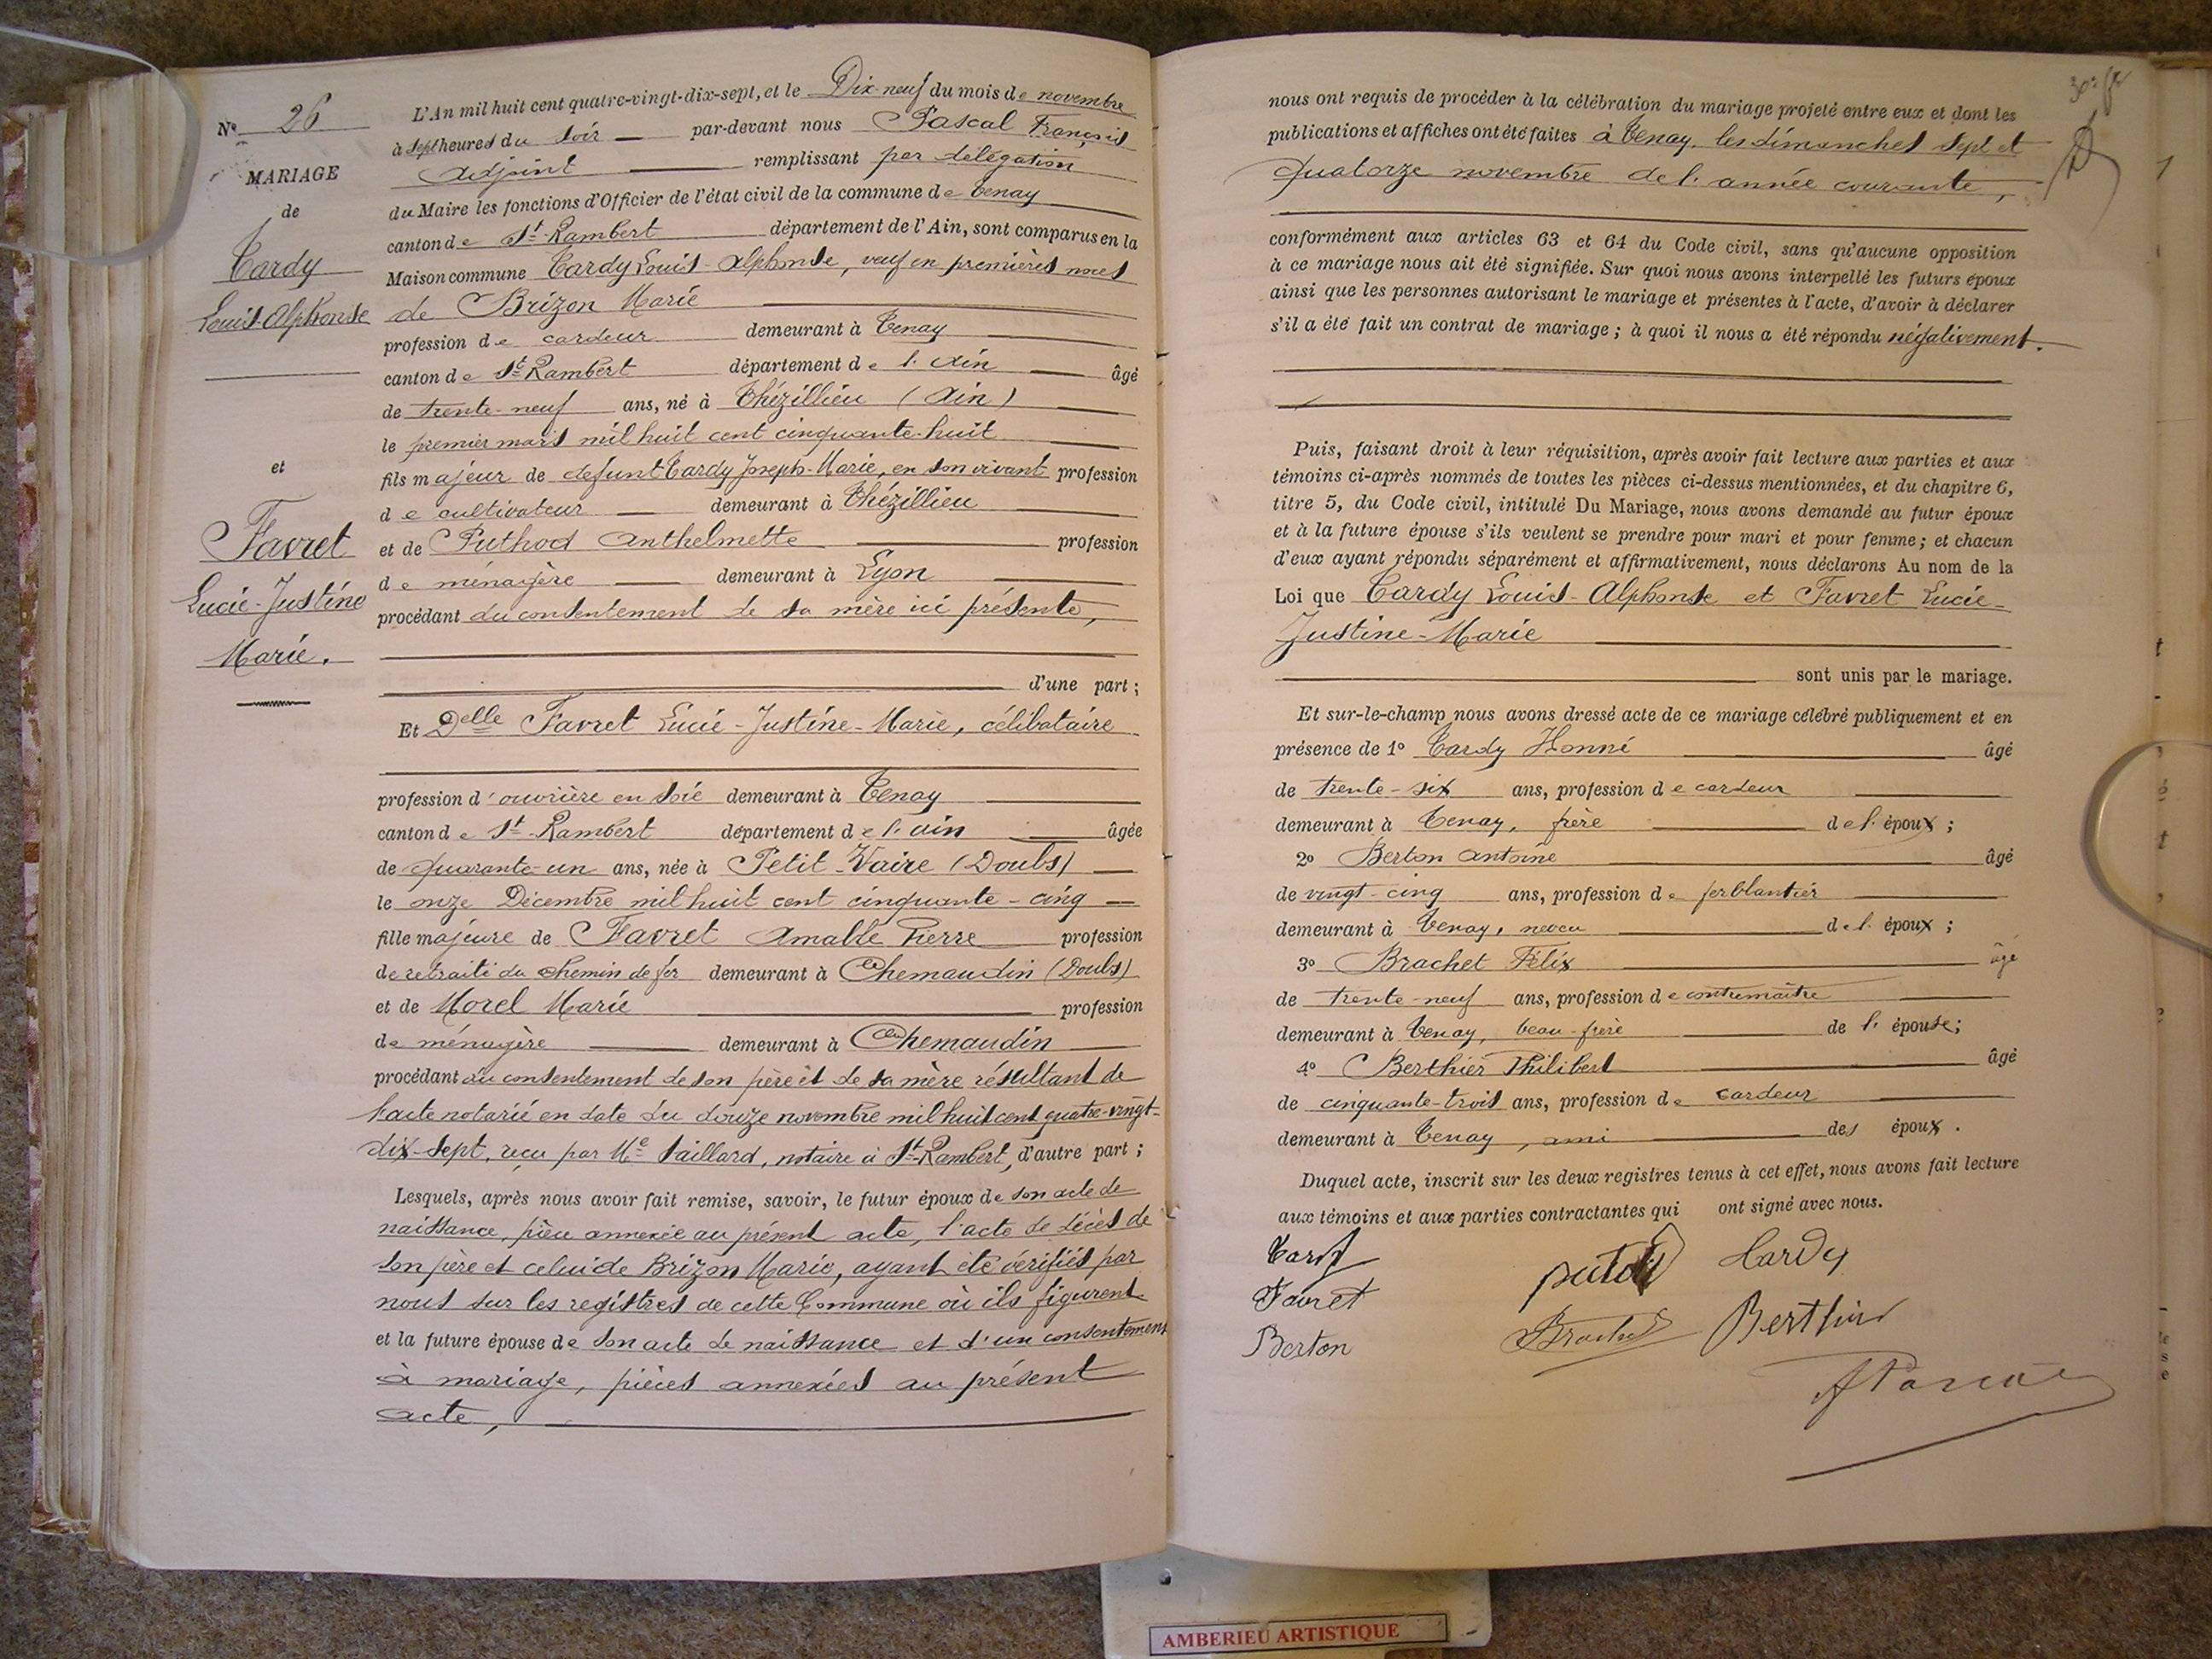 Nº 26
MARIAGE
de
Tardy
Louis-Alphonse
et
Favret
Lucie-Justine
Marie.
L'An mil huit cent quatre-vingt-dix-sept, et le Dix-neuf du mois de novembre
à sept heures du soir par-devant nous Pascal François
Adjoint remplissant par délégation
du Maire les fonctions d'Officier de l'état civil de la commune de Tenay
canton de St-Rambert département de l'Ain, sont comparus en la
Maison commune Tardy Louis-Alphonse, veuf en premières noces
de Brizon Marie
profession de cardeur demeurant à Tenay
canton de St-Rambert département de l'Ain âgé
de trente-neuf ans, né à Thézillieu (Ain)
le premier mars mil huit cent cinquante-huit
fils majeur de defunt Tardy Joseph-Marie, en son vivant profession
de cultivateur demeurant à Thézillieu
et de Puthod Anthelmette profession
de ménagère demeurant à Lyon
procédant du consentement de sa mère ici présente,
d'une part ;
Et Delle Favret Lucie-Justine-Marie, célibataire
profession d'ouvrière en soie demeurant à Tenay
canton de St-Rambert département de l'Ain âgée
de quarante-un ans, née à Petit-Vaire (Doubs)
le onze Décembre mil huit cent cinquante-cinq
fille majeure de Favret Amable Pierre profession
de retraité du chemin de fer demeurant à Chemaudin (Doubs)
et de Morel Marie profession
de ménagère demeurant à Chemaudin
procédant du consentement de son père et de sa mère résultant de
l'acte notarié en date du douze novembre mil huit cent quatre-vingt-
dix-sept, reçu par Me Saillard, notaire à St-Rambert, d'autre part ;
Lesquels, après nous avoir fait remise, savoir, le futur époux de son acte de
naissance, pièce annexée au présent acte, l'acte de décès de
son père et celui de Brizon Marie, ayant été vérifiés par
nous sur les registres de cette Commune où ils figurent
et la future épouse de son acte de naissance et d'un consentement
à mariage, pièces annexées au présent
acte,
nous ont requis de procéder à la célébration du mariage projeté entre eux et dont les
publications et affiches ont été faites à Tenay, les dimanches sept et
quatorze novembre de l'année courante,
conformément aux articles 63 et 64 du Code civil, sans qu'aucune opposition
à ce mariage nous ait été signifiée. Sur quoi nous avons interpellé les futurs époux
ainsi que les personnes autorisant le mariage et présentes à l'acte, d'avoir à déclarer
s'il a été fait un contrat de mariage ; à quoi il nous a été répondu négativement.
Puis, faisant droit à leur réquisition, après avoir fait lecture aux parties et aux
témoins ci-après nommés de toutes les pièces ci-dessus mentionnées, et du chapitre 6,
titre 5, du Code civil, intitulé Du Mariage, nous avons demandé au futur époux
et à la future épouse s'ils veulent se prendre pour mari et pour femme ; et chacun
d'eux ayant répondu séparément et affirmativement, nous déclarons Au nom de la
Loi que Tardy Louis-Alphonse et Favret Lucie-
Justine-Marie
sont unis par le mariage.
Et sur-le-champ nous avons dressé acte de ce mariage célébré publiquement et en
présence de 1º Tardy Honné âgé
de trente-six ans, profession de cardeur
demeurant à Tenay, frère de l'époux ;
2º Berton Antoine âgé
de vingt-cinq ans, profession de ferblantier
demeurant à Tenay, neveu de l'époux ;
3º Brachet Félix âgé
de trente-neuf ans, profession de contremaître
demeurant à Tenay, beau-frère de l'épouse ;
4º Berthier Philibert âgé
de cinquante-trois ans, profession de cardeur
demeurant à Tenay, ami des époux.
Duquel acte, inscrit sur les deux registres tenus à cet effet, nous avons fait lecture
aux témoins et aux parties contractantes qui ont signé avec nous.
Tardy Tardy
Favret
Berton Brachet Berthier
Pascal
AMBERIEU ARTISTIQUE